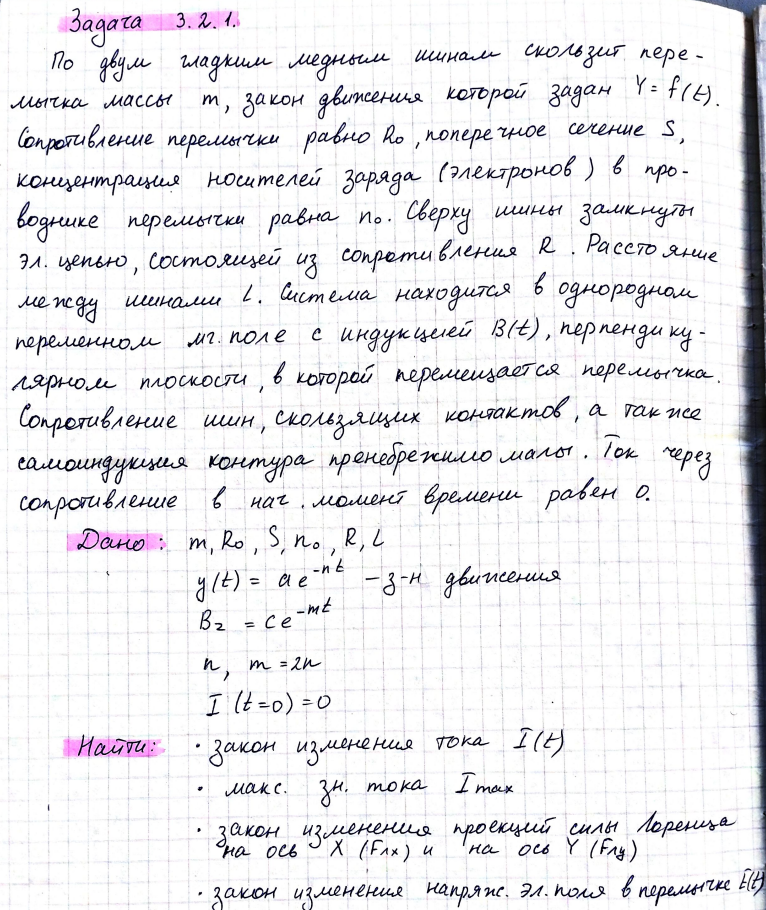 Задача 3.2.1.
По двум гладким медным шинам скользит пере-
мычка массы m, закон движения которой задан Y = f(t).
Сопротивление перемычки равно R₀, поперечное сечение S,
концентрация носителей заряда (электронов) в про-
воднике перемычки равна n₀. Сверху шины замкнуты
эл. цепью, состоящей из сопротивления R. Расстояние
между шинами L. Система находится в однородном
переменном мг. поле с индукцией B(t), перпендику-
лярном плоскости, в которой перемещается перемычка.
Сопротивление шин, скользящих контактов, а также
самоиндукция контура пренебрежимо малы. Ток через
сопротивление в нач. момент времени равен 0.
Дано: m, R₀, S, n₀, R, L
y(t) = ae^{-nt} – з-н движения
B_z = ce^{-mt}
n, m = 2n
I (t=0) = 0
Найти: · закон изменения тока I(t)
· макс. зн. тока Imax
· закон изменения проекций силы Лоренца
на ось X (Fлx) и на ось Y (Fлy)
· закон изменения напряж. эл. поля в перемычке E(t)